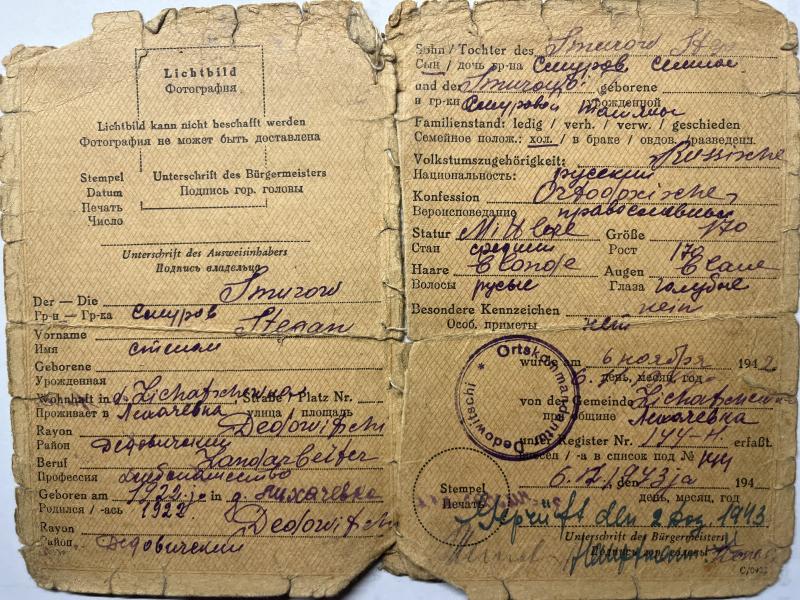 Lichtbild
Фотография
Lichtbild kann nicht beschafft werden
Фотография не может быть доставлена
Stempel Unterschrift des Bürgermeisters
Datum Подпись гор. головы
Печать
Число
Unterschrift des Ausweisinhabers
Подпись владельца
Der — Die Smurow
Гр-н — Гр-ка смуров
Vorname Stepan
Имя степан
Geborene
Урожденная
Wohnhaft in d. Straße / Platz Nr.
Проживает в Лихачевка улица площадь
Rayon Dedowitschi
Район Дедовический
Beruf Landarbeiter
Профессия
Geboren am 1922 in д. Лихачевка
Родился / -ась 1922
Rayon Dedowitschi
Район Дедовический
Sohn / Tochter des Smurow
Сын / дочь гр-на Смуров
und der geborene
и гр-ки Смуровой урожденной
Familienstand: ledig / verh. / verw. / geschieden
Семейное полож.: хол. / в браке / овдов. / разведенн.
Volkstumszugehörigkeit: Russische
Национальность: русский
Konfession
Вероисповедание православный
Statur Mittlere Größe 170
Стан средний Рост 170
Haare Blonde Augen Blaue
Волосы русые Глаза голубые
Besondere Kennzeichen nein
Особ. приметы нет
wurde am 6 ноября 1942
день, месяц, год
von der Gemeinde
при общине Лихачевка
unter Register Nr. 144-H erfaßt
внесен / -а в список под №
Ortskommandantur Dedowitschi
den 194
день, месяц, год
Stempel
Печать
Geprüft den 2 Dez 1943
Unterschrift des Bürgermeisters
Подпись гор. головы